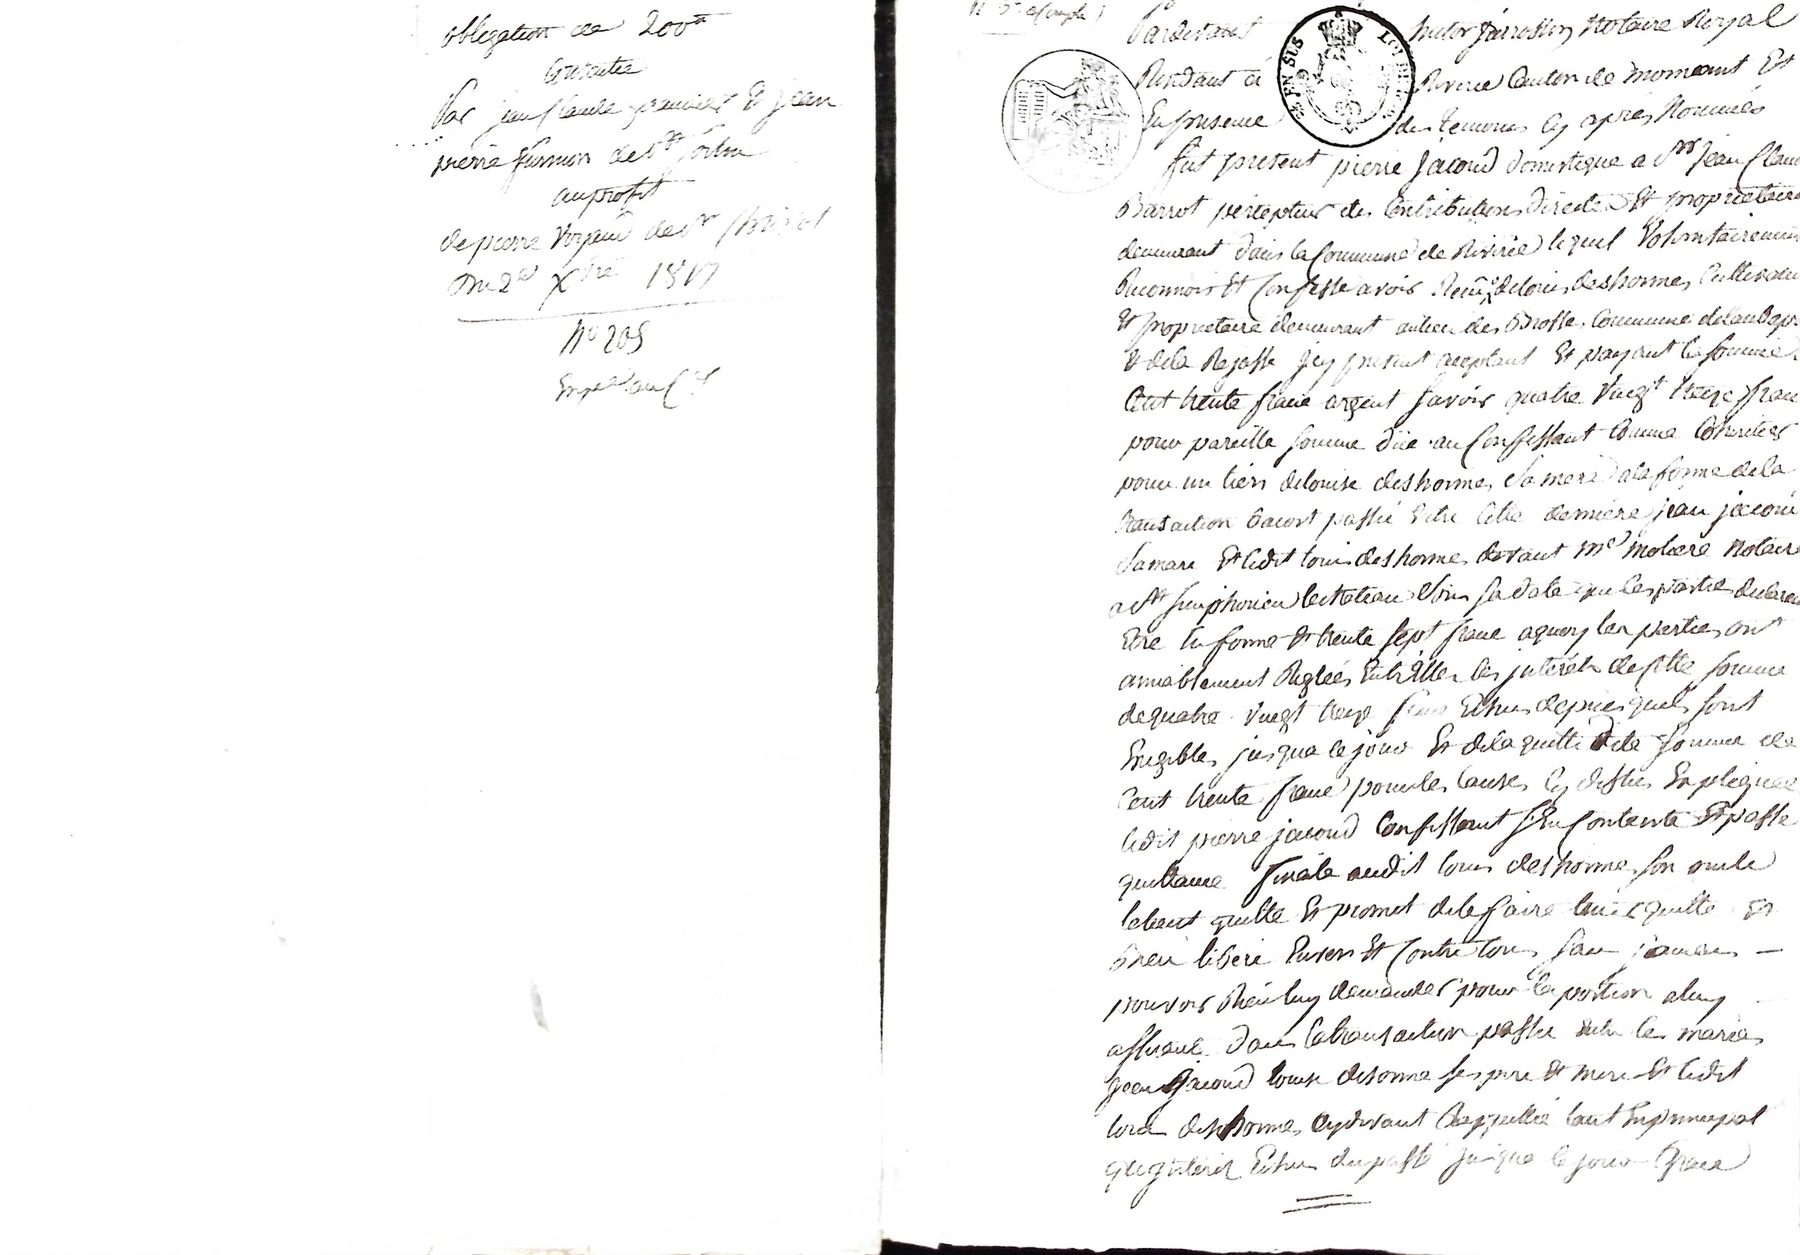 obligation de 200 #
Consentie
Par jean Claude et jean
pierre de St
au profit
de pierre de St
Du 2e Xbre 1817
No 205
Pardevant Notaire Royal
Résidant à Riverie Canton de mornant Et
En presence des temoins Cy après Nommés
fut present pierre jacoud domestique a Mr jean Claude
Barrot percepteur des Contributions directes Et propriétaire
demeurant dans la Commune de Riverie lequel Volontairement
Reconnoit Et Confesse avoir Reçu de louis deshorme Cultivateur
Et proprietaire demeurant au lieu des Brosse Commune de
jcy present acceptant Et payant la somme de
Cent trente franc argent savoir quatre Vingt treize franc
pour pareille somme düe au Confessant Comme Coheritier
pour un tiers de louise deshorme sa mere a la forme de la
transaction passé Entre Cette derniere jean jacoud
Samari Et ledit louis deshorme devant Me Notaire
a St Simphorien le Chateau Sous sa date que les partie declarent
Etre En forme Et trente sept franc a quoy les parties ont
amiablement Reglés Entr'Elles les jnterêts de Cette somme
de quatre Vingt treize franc Echus depuis quels sont
Exigibles jusque ce jour Et de laquelle dite somme de
Cent trente franc pour les Causes Cy dessus Expliquée
ledit pierre jacoud Confessant S'En Contente Et passe
quittance finale audit louis deshorme son oncle
le tient quitte Et promet de le faire tenir quitte Et
bien libere Envers Et Contre tous sans jamais
pouvoir Rien luy demander pour la portion a luy
assurant dans la transaction passée entre les mariés
jean jacoud louise deshorme ses pere Et mere Et ledit
louis deshorme cydevant Rappellé tant En principal
qu'jnteret Echus du passé jusque ce jour